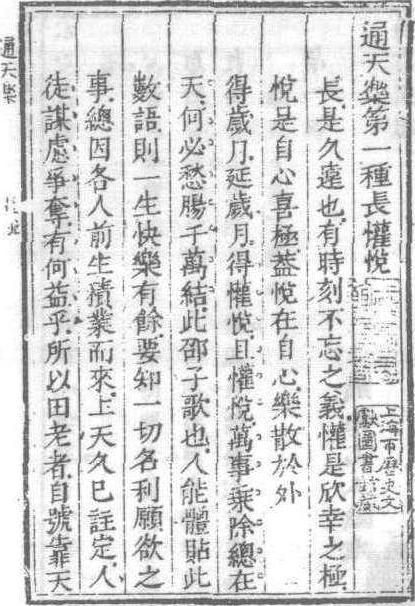 通天樂第一種長懽悅
長是久遠也有時刻不忘之義懽是欣幸之極
悅是自心喜極葢悅在自心樂散於外
得歲月延歲月得懽悅且懽悅萬事乗除總在
天何必愁腸千萬結此邵子歌也人能體貼此
數語則一生快樂有餘要知一切名利願欲之
事總因各人前生積業而來上天久已註定人
徒謀慮爭奪有何益乎所以田老者自號靠天
上海市歷史文
獻圖書館藏
通天樂